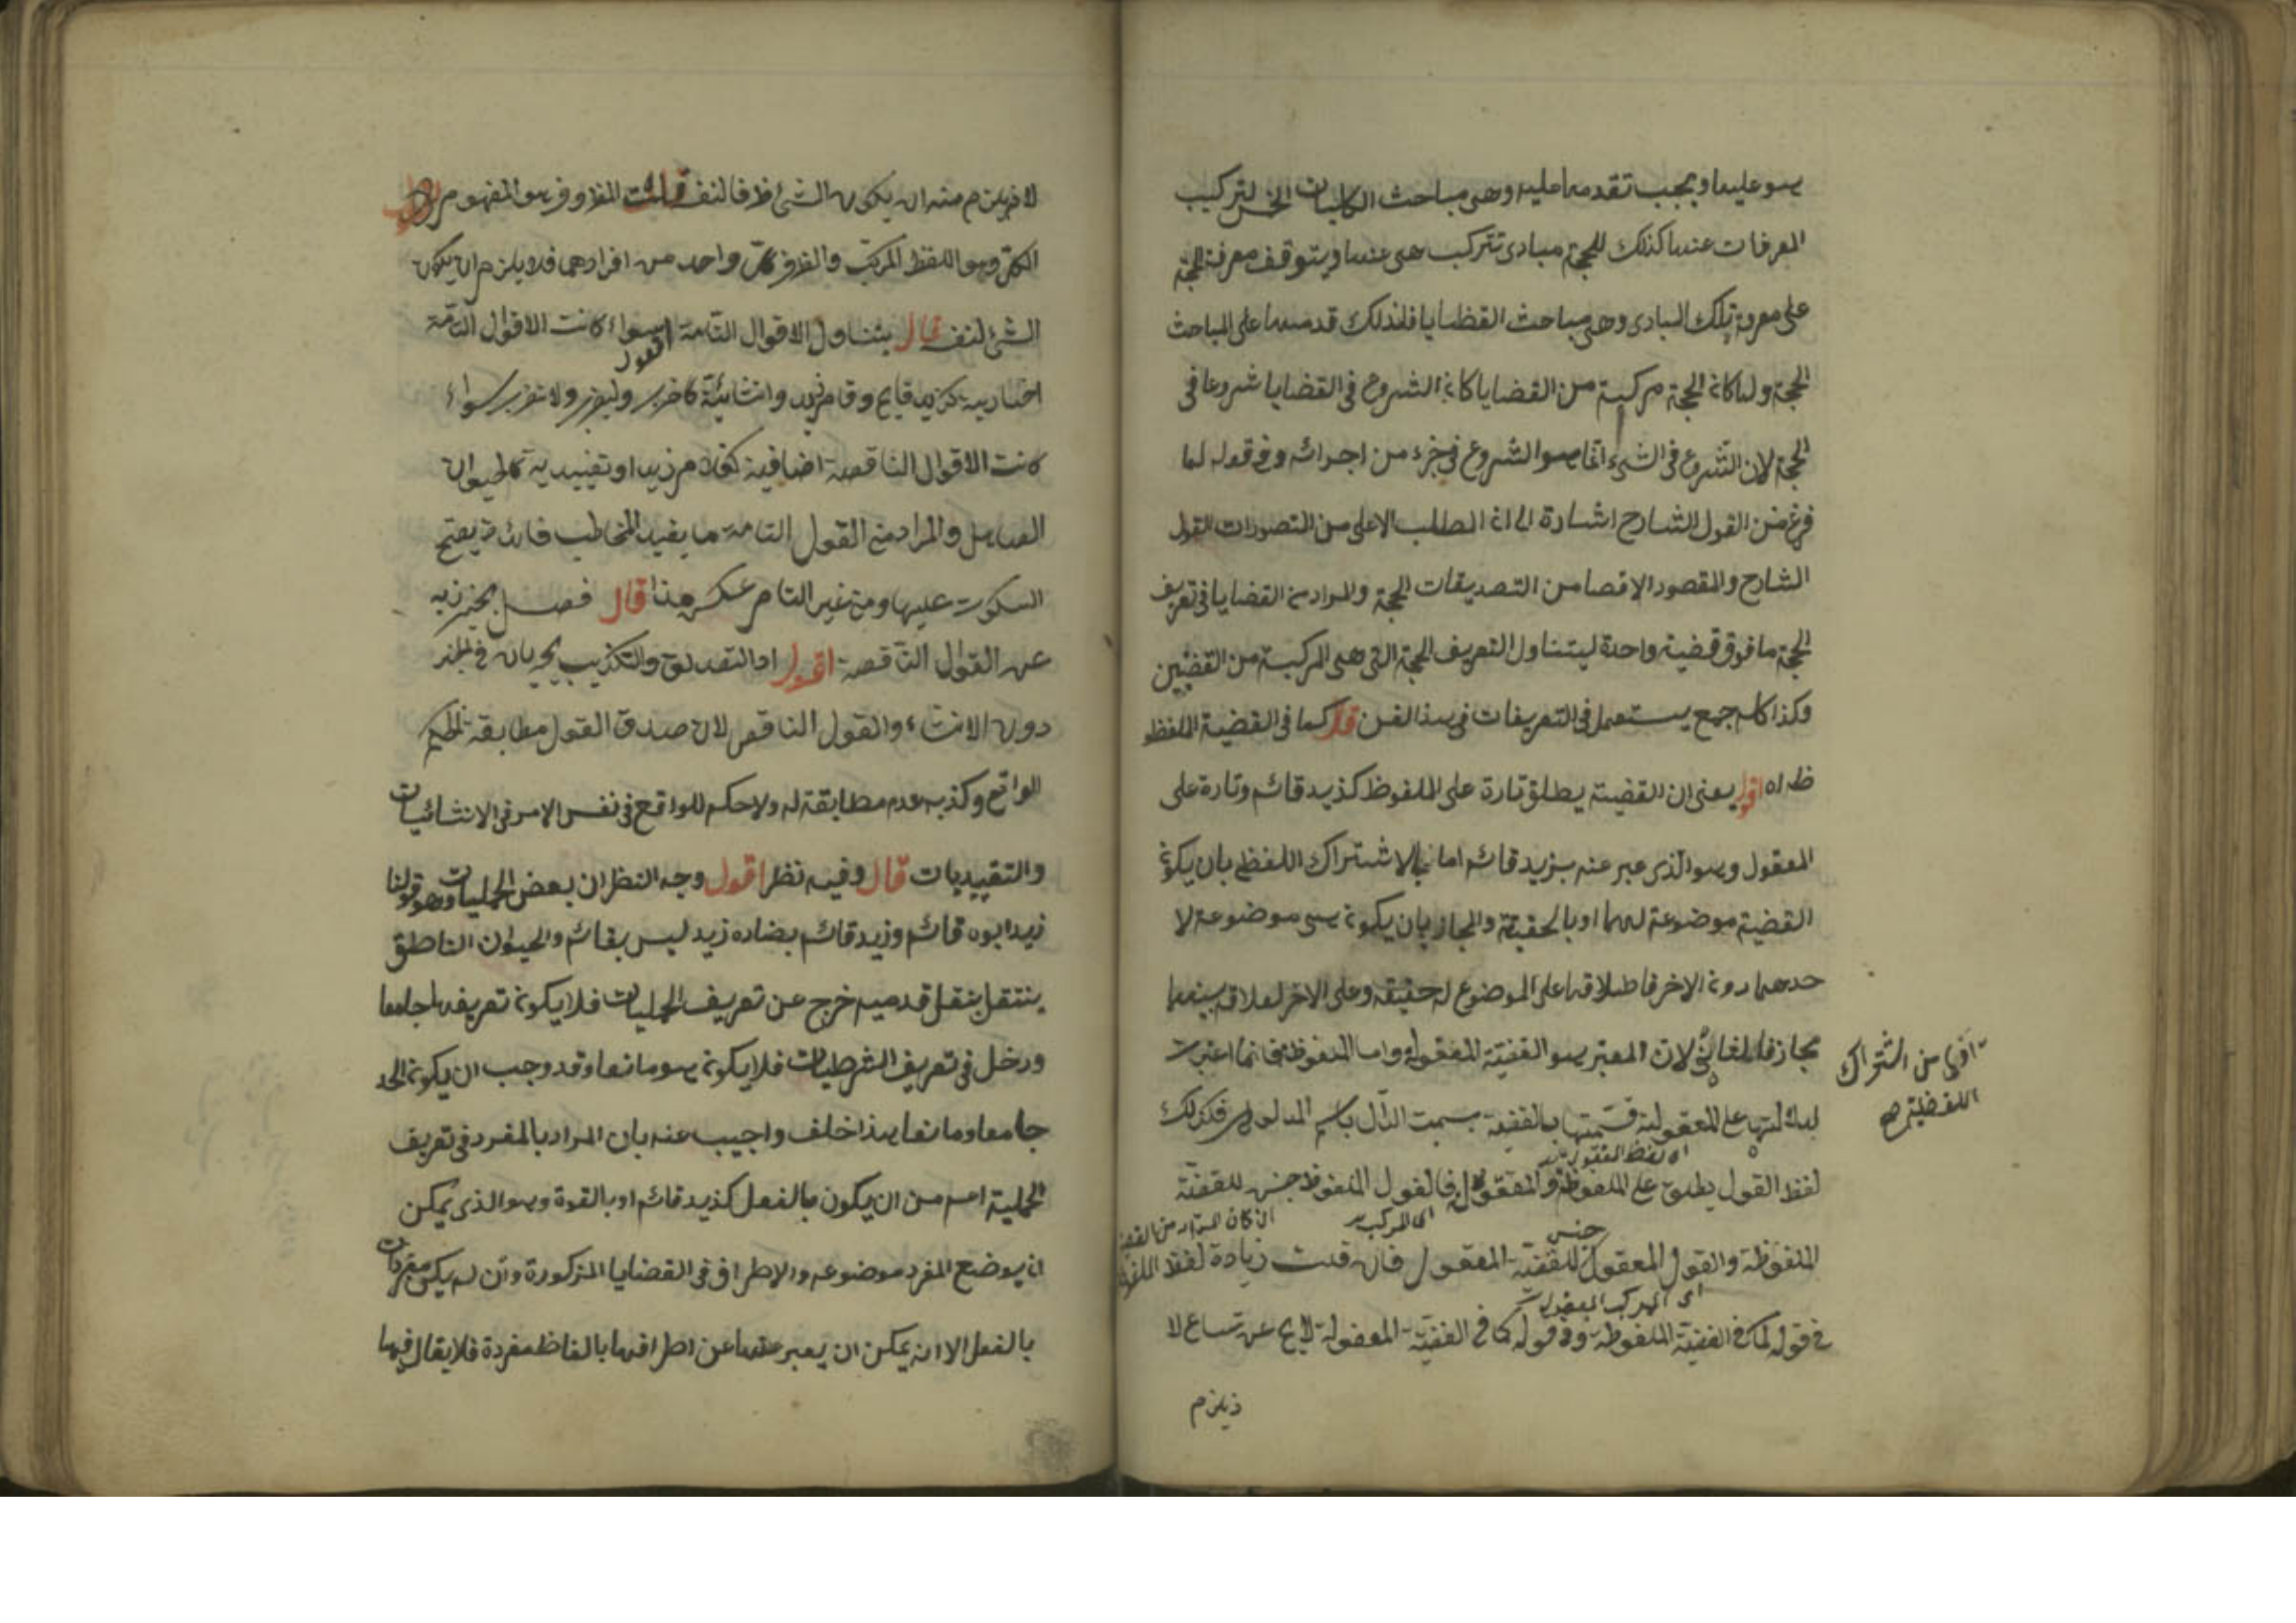 هو عليها ويجب تقدمها عليه وهى مباحث الكليات الخمس لتركيب
المعرفات عنها كذلك للحجة مبادى تتركب هى عنها ويتوقف معرفة الحجة
على معرفة تلك المبادى وهى مباحث القظايا فلذلك قدمها على المباحث
الحجة ولما كانة الحجة مركبة من القضايا كانة الشروع فى القضايا شروعا فى
الحجة لان الشروع فى الشئ انما هو الشروع فى جزء من اجزائه وفى قوله لما
فرغ من القول الشارح اشارة الى ان المطلب الاعلى من التصورات القول
الشارح والمقصود الاقصا من التصديقات الحجة والمراد من القضايا فى تعريف
الحجة ما فوق قضية واحدة ليتناول التعريف الحجة التى هى المركبة من القضيتين
وكذا كل جمع يستعمل فى التعريفات فى هذا الفن قال كما فى القضية الملفظ
ظ اه اقول يعنى ان القضية يطلق تارة على الملفوظ كذيد قائم وتارة على
المعقول وهو الذى عبر عنه بزيد قائم اما بالاشتراك اللفظى بان يكون
القضية موضوعة لهما او بالحقيقة والمجاز بان يكون هى موضوعة لا
حدهما دون الاخر فاطلاقها على الموضوع له حقيقه وعلى الاخر لعلاقة بينهما
مجاز لان المعتبر هو القضية المعقولة واما الملفوظة فانما اعتبرت
لدلالتها على المعقولة فسميتها بالقضية تسمية الدال باسم المدلول فكذلك
لفظ القول يطلق على الملفوظة والمعقولة فالقول الملفوظ جنس للقضية
الملفوظة والقول المعقول جنس للقضية المعقول فان قلت زيادة لفظ الملفوظ
فى قوله كما فى القضية الملفوظة وفى قوله كما فى القضية المعقولة لايخ عن تسامح لا
اى المركب
اى المركب المعقول
ان كان المراد من القضية
اولى من اشتراك
اللفظ
ذيلزم
لا فيلزم منه ان يكون الشئ ظرفا لنفسه قلت المظروف هو المفهوم
الكلى وهو اللفظ المركب والظرف كل واحد من افرادهما فلا يلزم ان يكون
الشئ لنفسه قال يتناول الاقوال التامة اقول سواء كانت الاقوال التامة
اخبارية كزيد قايم وقام زيد وانشائية كاضرب وليضرب ولا تضرب سواء
كانت الاقوال الناقصة اضافية كغلام زيد او تقييدية كالحيوان
الصاهل والمراد من القول التامة ما يفيد المخاطب فائدة يصح
السكوت عليها ومن غير التام عكس هذا قال فصل يحترز به
عن القول الناقصة اقول اذ التصديق والتكذيب يجريان فى الخبر
دون الانشاء والقول الناقص لان صدق القول مطابقة الحكم
الواقع وكذبه عدم مطابقة له ولا حكم للواقع فى نفس الامر فى الانشائيات
والتقييديات قال وفيه نظر اقول وجه النظر ان بعض الحمليات وهو قولنا
زيد ابوه قائم وزيد قائم يضاده زيد ليس بقائم والحيوان الناطق
ينتقل بنقل قدميه خرج عن تعريف الحمليات فلا يكون تعريفها جامعا
ودخل فى تعريف الشرطيات فلا يكون هو مانعا وقد وجب ان يكون الحد
جامعا ومانعا هذا خلف واجيب عنه بان المراد بالمفرد فى تعريف
الحملية اعم من ان يكون بالفعل كذيد قائم او بالقوة وهو الذى يمكن
ان يوضع المفرد موضوعه والاطراف فى القضايا المذكورة وان لم يكن مفردات
بالفعل الا انه يمكن ان يعبر عنها عن اطرافها بالفاظ مفردة فلا يقال فيها